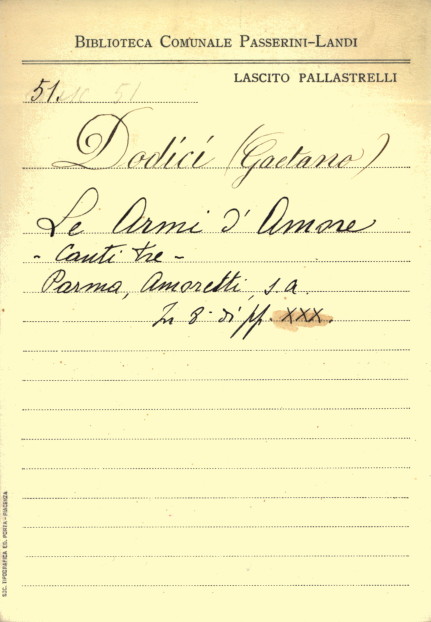 BIBLIOTECA COMUNALE PASSERINI-LANDI
LASCITO PALLASTRELLI
51.
Dodici (Gaetano)
Le Armi d'Amore
- Canti tre -
Parma, Amoretti, s.a.
In 8° di pp. XXX.
SOC. TIPOGRAFICA ED. PORTA - PIACENZA